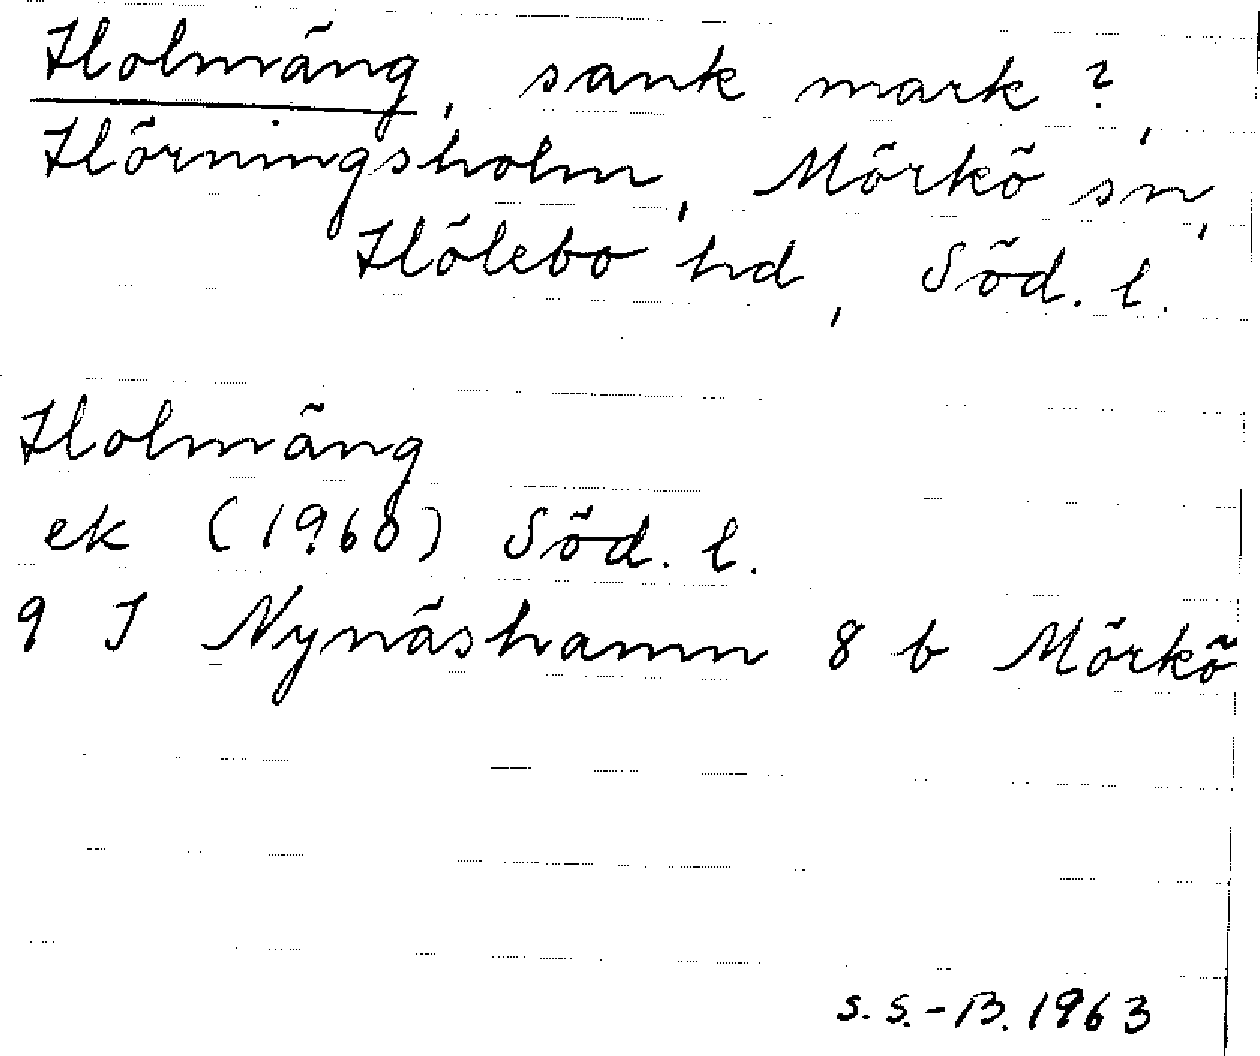 Holmäng, sank mark?,
Hörningsholm, Mörkö sn,
Hölebo hd, Söd. l.
Holmäng
ek (1960) Söd. l.
9 I Nynäshamn 8 b Mörkö
S. S.-B. 1963